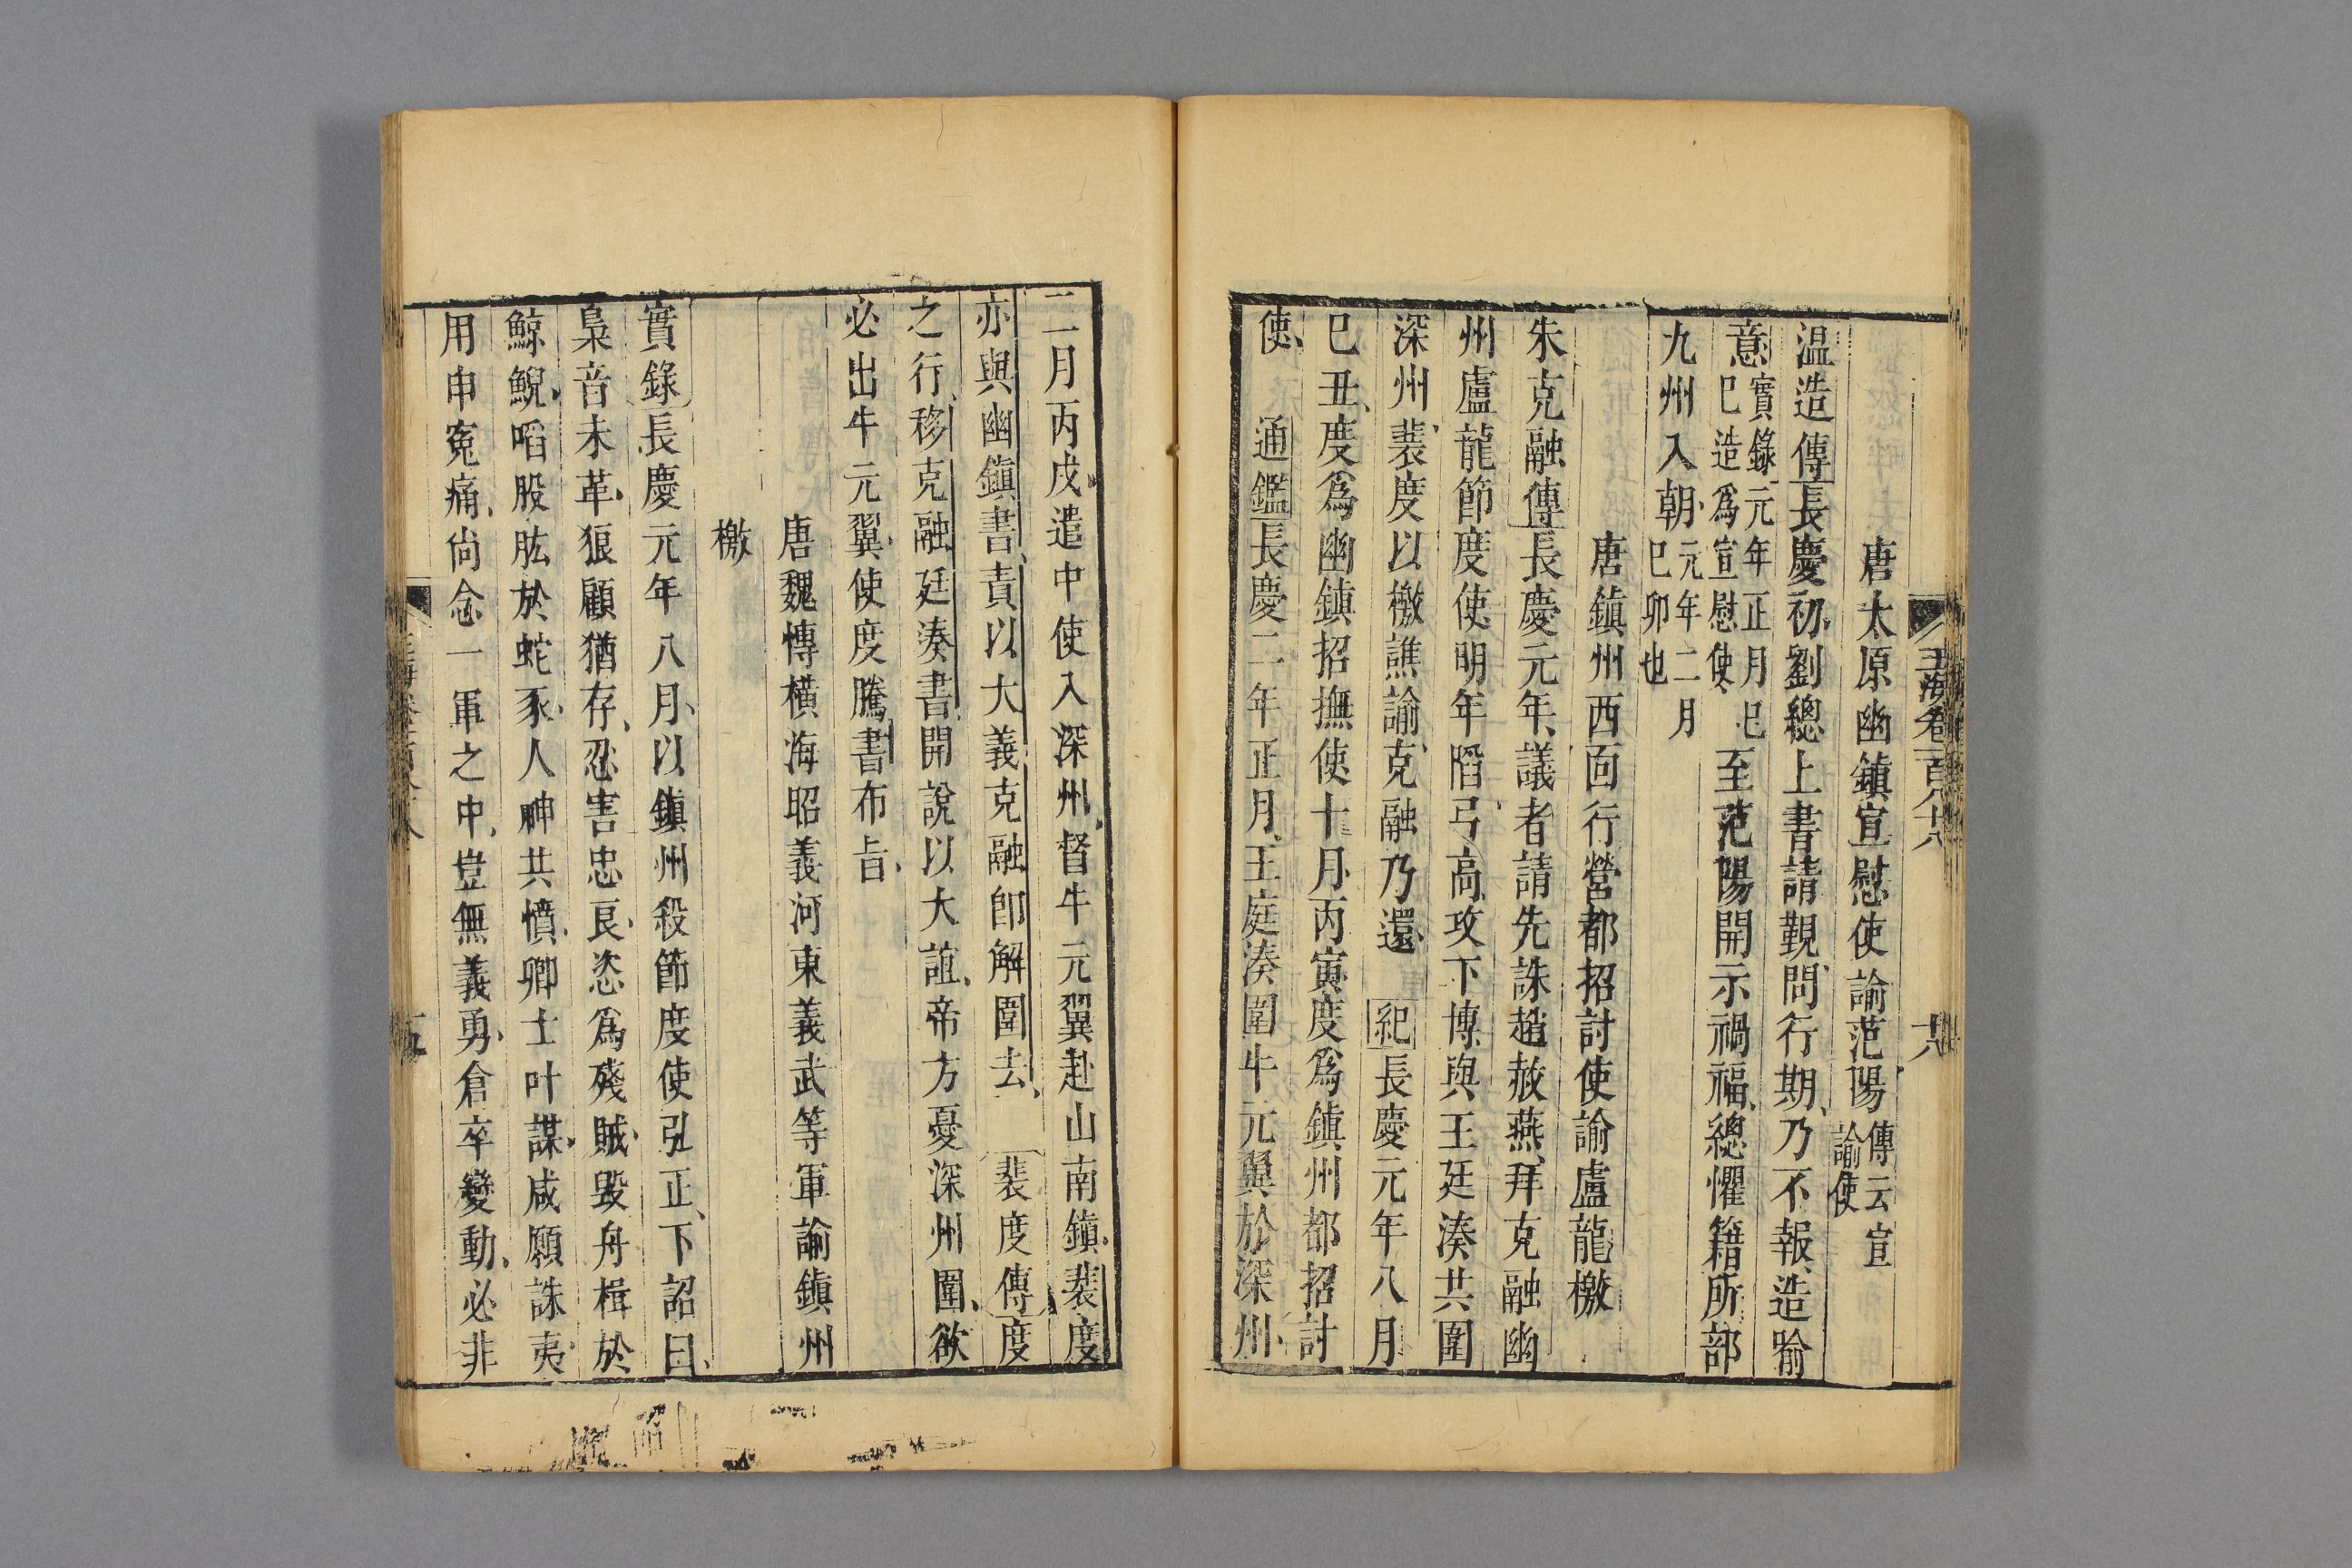 玉海卷一百八十八
唐太原幽鎮宣慰使諭范陽傳云宣諭使
温造傳長慶初劉總上書請覲問行期乃不報造喻
意實錄元年正月巳巳造爲宣慰使至范陽開示禍福總懼籍所部
九州入朝元年二月巳卯也
唐鎮州西面行營都招討使諭盧龍檄
朱克融傳長慶元年議者請先誅趙赦燕拜克融幽
州盧龍節度使明年䧟弓高攻下博與王廷湊共圍
深州裴度以檄譙諭克融乃還 紀長慶元年八月
巳丑度爲幽鎮招撫使十月丙寅度爲鎮州都招討
使 通鑑長慶二年正月王庭湊圍牛元翼於深州
二月丙戌遣中使入深州督牛元翼赴山南鎮裴度
亦與幽鎮書責以大義克融卽解圍去 裴度傳度
之行移克融廷湊書開說以大誼帝方憂深州圍欲
必出牛元翼使度騰書布旨
唐魏博橫海昭義河東義武等軍諭鎮州
檄
實錄長慶元年八月以鎮州殺節度使弘正下詔曰
梟音未革狼顧猶存忍害忠良恣爲殘賊毀舟楫於
鯨鯢啗股肱於蛇豕人神共憤卿士叶謀咸願誅夷
用申寃痛尙念一軍之中豈無義勇倉卒變動必非